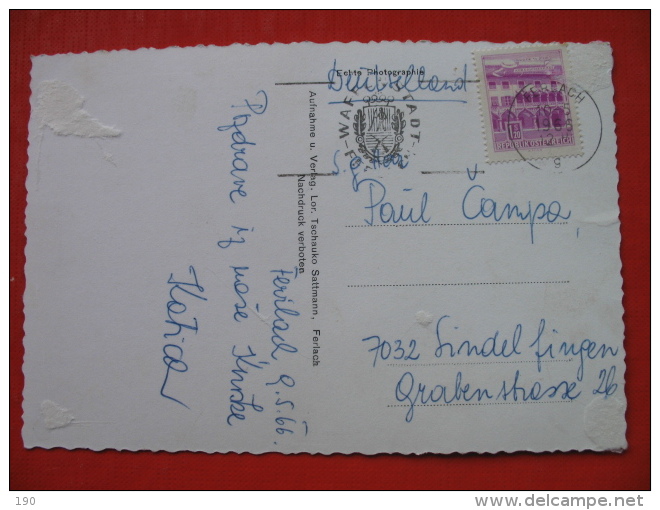 Deutschland
Echte Photographie
Aufnahme u. Verlag. Lor. Tschauko Sattmann, Ferlach
Nachdruck verboten
REPUBLIK ÖSTERREICH
Paul Čampa,
7032 Sindelfingen
Grabenstrasse 26
9.5.66.
Pozdrave iz naše
Katica
190
delcampe.net